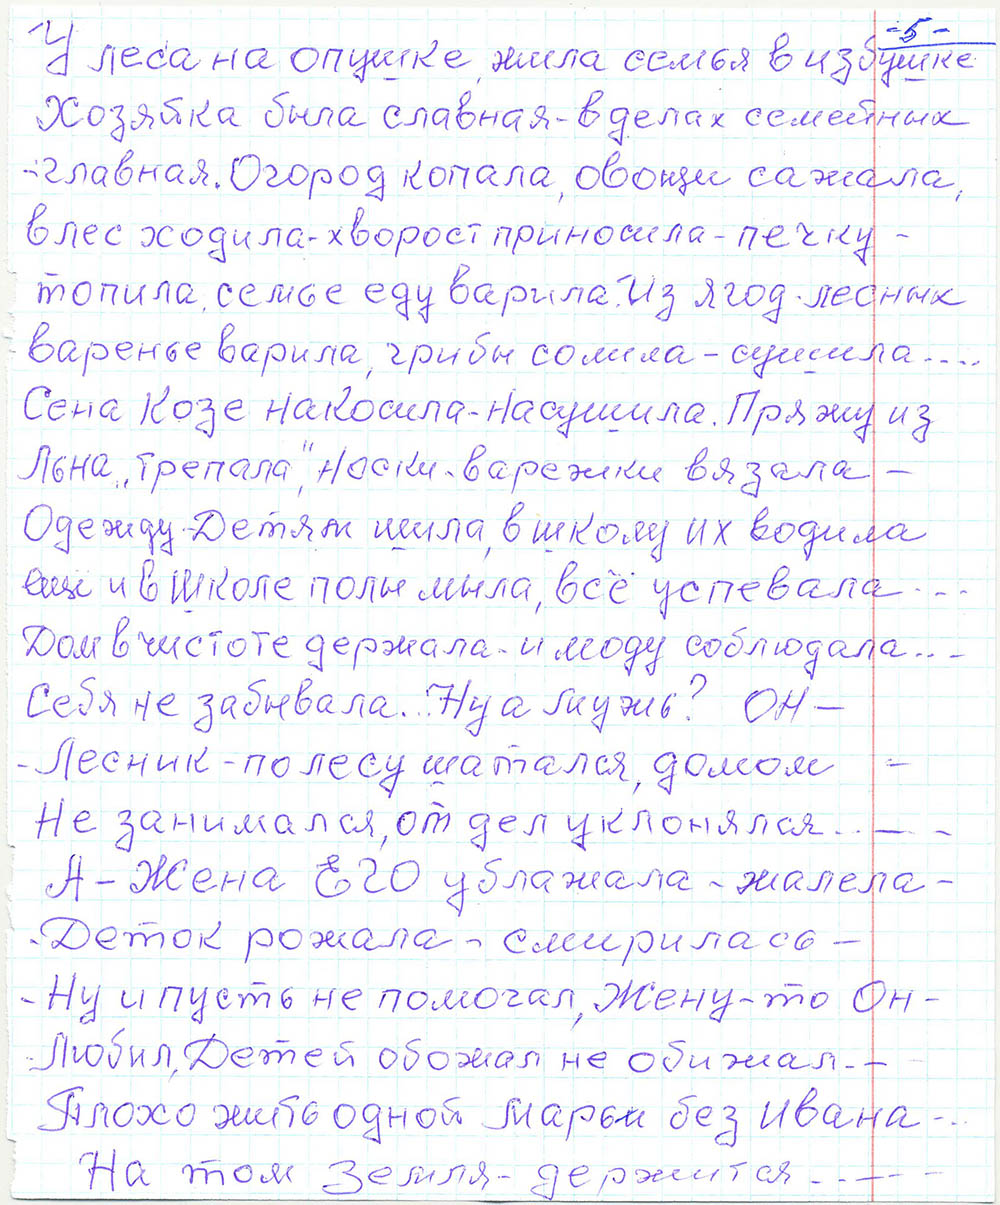 -5-
У леса на опушке, жила семья в избушке
Хозяйка была славная - в делах семейных
- главная. Огород копала, овощи сажала,
в лес ходила - хворост приносила - печку -
топила, семье еду варила. Из ягод лесных
варенье варила, грибы солила - сушила....
Сена Козе накосила - насушила. Пряжу из
Льна „трепала", носки - варежки вязала -
Одежду Детям шила, в школу их водила
ещё и в Школе полы мыла, всё успевала....
Дом в чистоте держала - и моду соблюдала...
Себя не забывала... Ну а Мужь? ОН -
- Лесник - по лесу шатался, домом -
Не занимался, от дел уклонялся....
А - Жена ЕГО ублажала - жалела -
- Деток рожала - смирилась -
- Ну и пусть не помогал, Жену - то Он -
- Любил, Детей обожал не обижал...
Плохо жить одной Марьи без Ивана...
На том Земля - держится.....